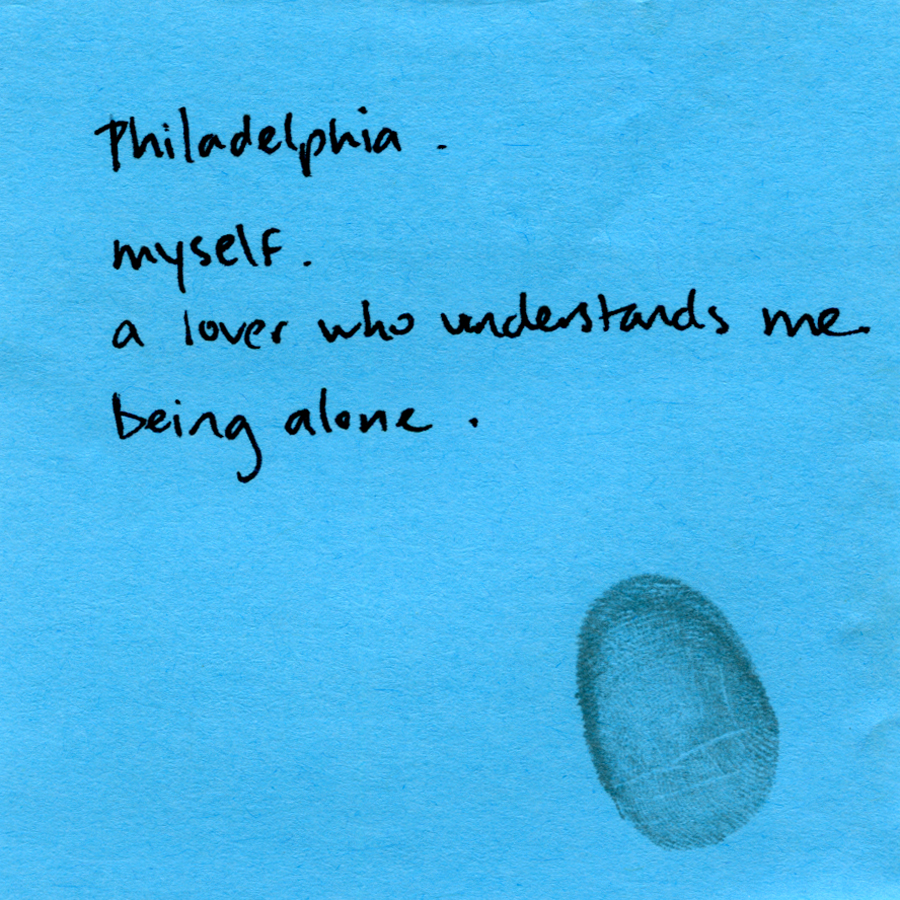 Philadelphia.
myself.
a lover who understands me.
being alone.